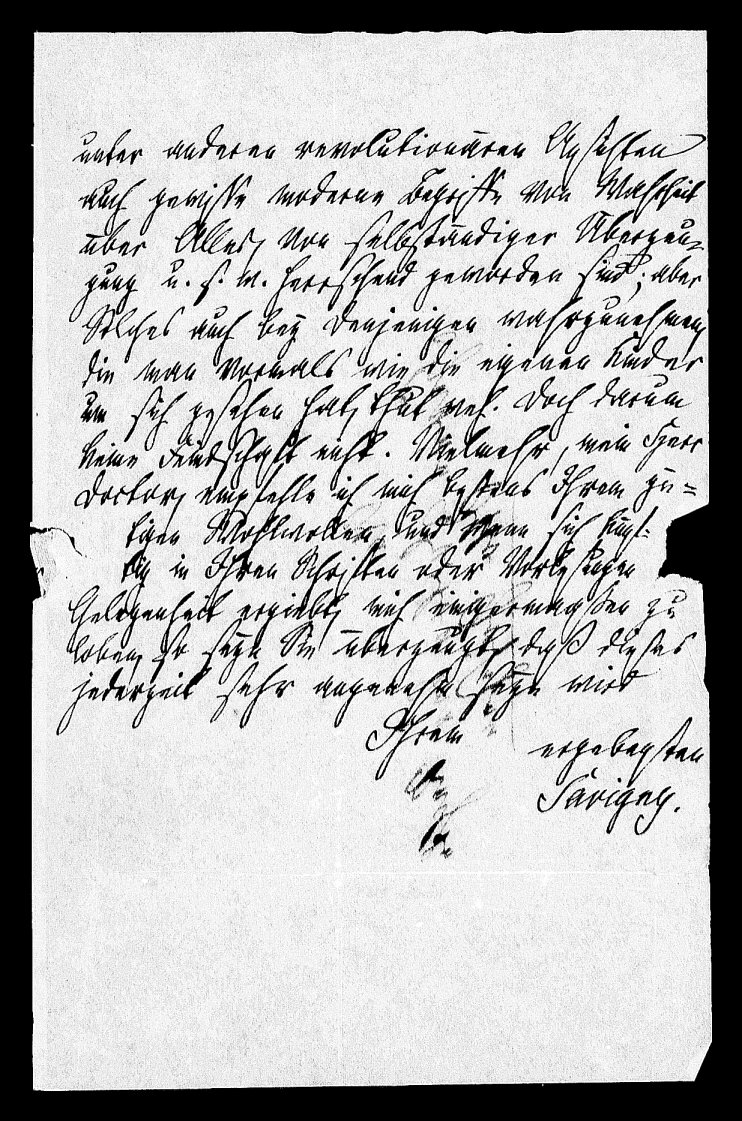 unter anderen revolutionären Ansichten
auch gewisse moderne Begriffe von Wahrheit
über Alles, von selbständiger Überzeu=
gung u. s. w. herrschend geworden sind; aber
Solches auch bey denjenigen wahrzunehmen,
die man vormals wie die eigenen Kinder
um sich gesehen hat, thut weh. Doch darum
keine Feindschaft nicht. Vielmehr, mein Herr
Doctor, empfehle ich mich bestens Ihrem gü=
tigen Wohlwollen, und wenn sich künf-
tig in Ihren Schriften oder Vorlesungen
Gelegenheit ergiebt, mich einigermaßen zu
loben, so seyn Sie überzeugt, daß dieses
jederzeit sehr angenehm seyn wird
Ihrem
ergebensten
Savigny.